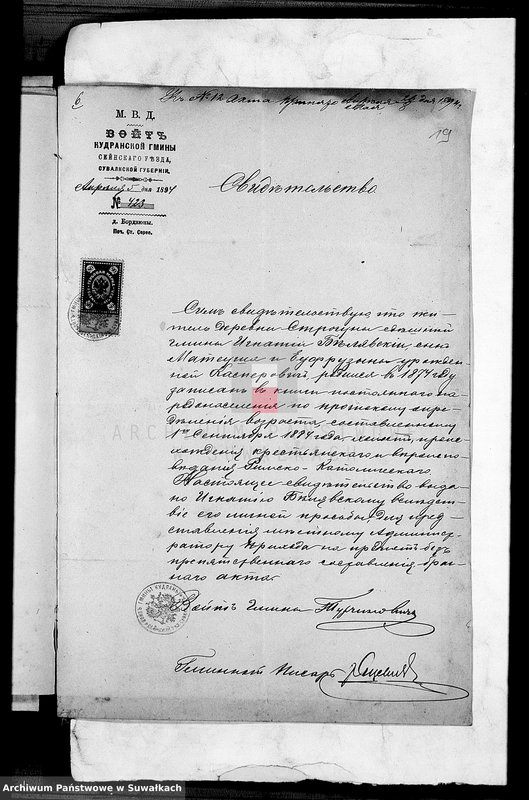 6
Къ № 12 Акта 1894 г.
19
М. В. Д.
ВОЙТЪ
КУДРАНСКОЙ ГМИНЫ
СЕЙНСКАГО УѢЗДА,
СУВАЛКСКОЙ ГУБЕРНІИ,
Апрѣля 5 дня 1894
№ 423
д. Бордзюны.
Поч. Ст. Серее.
Свидѣтельство
Симъ свидѣтельствую, что жи-
тель деревни Строчуны
гмины Игнатій Бѣлявскій, сынъ
Матеуша и Еуфрузины урожден-
ной Касперовичъ, родился въ 1874 году
записанъ въ книги постояннаго на-
родонаселенія по протоколу опре-
дѣленія возраста, составленному
1го Сентября 18 4 года, проис-
хожденія крестьянскаго и вѣроиспо-
вѣданія Римско-Католическаго.
Настоящее свидѣтельство выда-
но Игнатію Бѣлявскому вслѣдст-
віе его личной просьбы, для пред-
ставленія мѣстному Админист-
ратору прихода на предметъ без-
препятственнаго составленія брач-
наго акта.
Войтъ гмины
Гминный писарь
ARCH
Archiwum Państwowe w Suwałkach